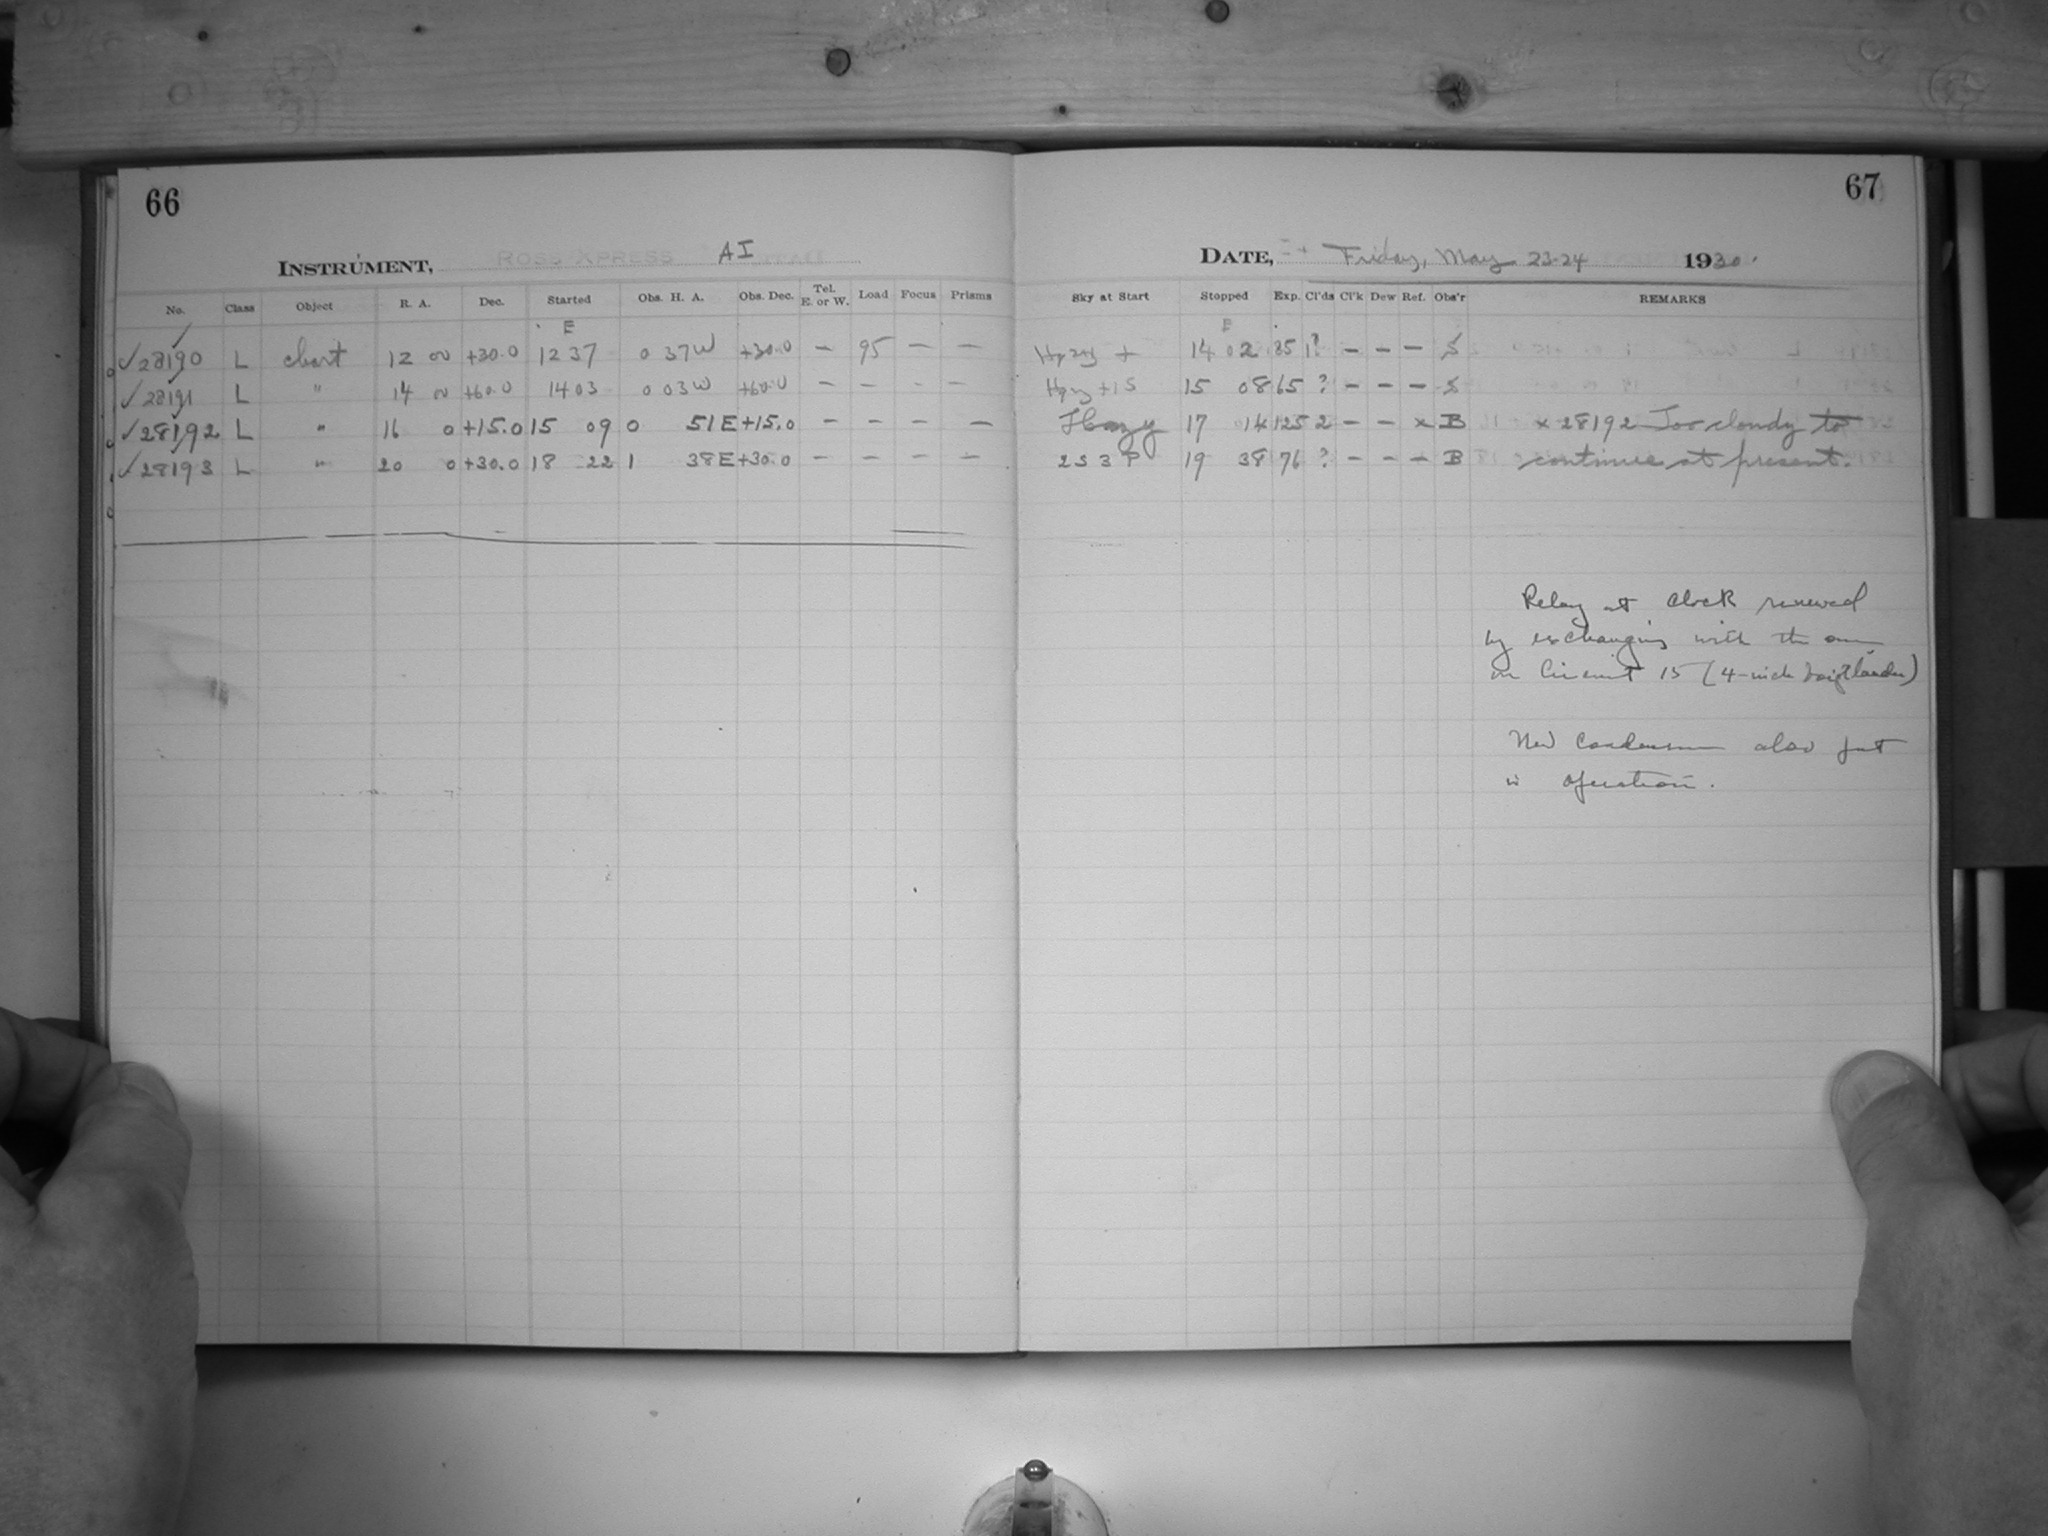 66
67
INSTRUMENT, AI
DATE, Friday, May 23-24 1930.
No. Class Object R. A. Dec. Started Obs. H. A. Obs. Dec. Tel. E. or W. Load Focus Prisms Sky at Start Stopped Exp. Cl'ds Cl'k Dew Ref. Obs'r REMARKS
E E
✓28190 L chart 12 00 +30.0 12 37 0 37W +30.0 — 95 — — Hazy + 14 02 85 1? — — — S
✓28191 L " 14 00 +60.0 14 03 0 03W +60.0 — — — — Hazy +1S 15 08 65 ? — — — S
✓28192 L " 16 0 +15.0 15 09 0 51E +15.0 — — — — Hazy 17 14 125 2 — — x B x 28192 Too cloudy to
✓28193 L " 20 0 +30.0 18 22 1 38E +30.0 — — — — 2S3P 19 38 76 ? — — — B continue at present.
Relay at clock renewed
by exchanging with the one
on Circuit 15 (4-inch Voigtlander)
New Condenser also put
in operation.